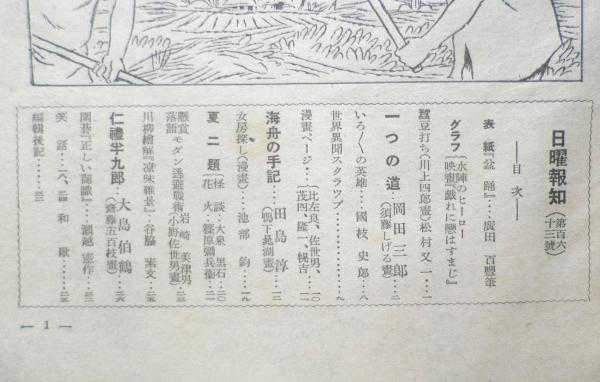 日曜報知（第百六十三號）
――目次――
表紙『盆踊』…廣田百豐筆
グラフ（水陣のヒーロー
（映畫『戯れに戀はすまじ』
豆打ち（川上四郎畫）松村又一…一
一つの道…岡田三郎…二
（須藤しげる畫）
いろ〱の英雄…國枝史郎…八
世界異聞スクラップ…九
漫畫ページ…（比左良、佐世男、茂四、隆一、幌吉）…一〇
海舟の手記…田島淳…一三
（鴨下晁湖畫）
女房探し（漫畫）…池部鈞…一九
夏二題（怪談・大泉黑石…二〇
（花火・篠原彌兵衞…二一
懸賞落語 モダン逃避戰術…岩崎美津男…二三
（小野佐世男畫）
川柳繪解『凉味雜景』…谷脇素文…二五
仁禮半九郎…大島伯鶴…二六
（齋藤五百枝畫）
圍碁『正しい常識』…瀨越憲作…三三
笑話…一八、二四 和歌…三五
編輯後記…三三
― 1 ―